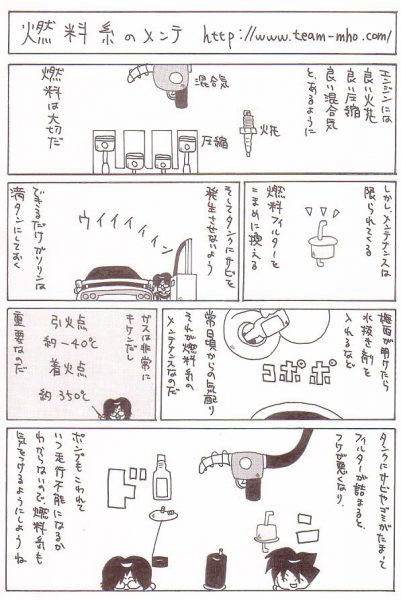 燃料系のメンテ http://www.team-mho.com/
エンジンには
良い火花
良い圧縮
良い混合気
と、あるように
混合気
圧縮
火花
燃料は大切だ
しかし、メンテナンスは
限られてくる
燃料フィルターを
こまめに換える
そしてタンクにサビを
発生させないよう
ウイイイイィン
できるだけガソリンは
満タンにしておく
梅雨が明けたら
水抜き剤を
入れるなど
コポポ
常日頃からの気配り
それが燃料系の
メンテナンスなのだ
ガスは非常に
キケンだし
引火点
約-40℃
着火点
約350℃
重要なのだ
タンクにサビやゴミがたまって
フィルターが詰まると、
フケが悪くなり、
ポンプもこわれて
いつ走行不能になるか
わからないので、燃料系も
気をつけるようにしようね